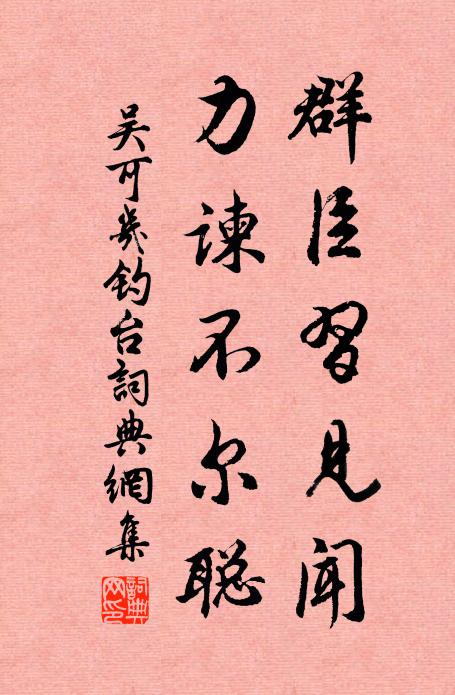 群臣習見聞
力諫不尔聪
吴可幾钓台詞典網集
詞典網印